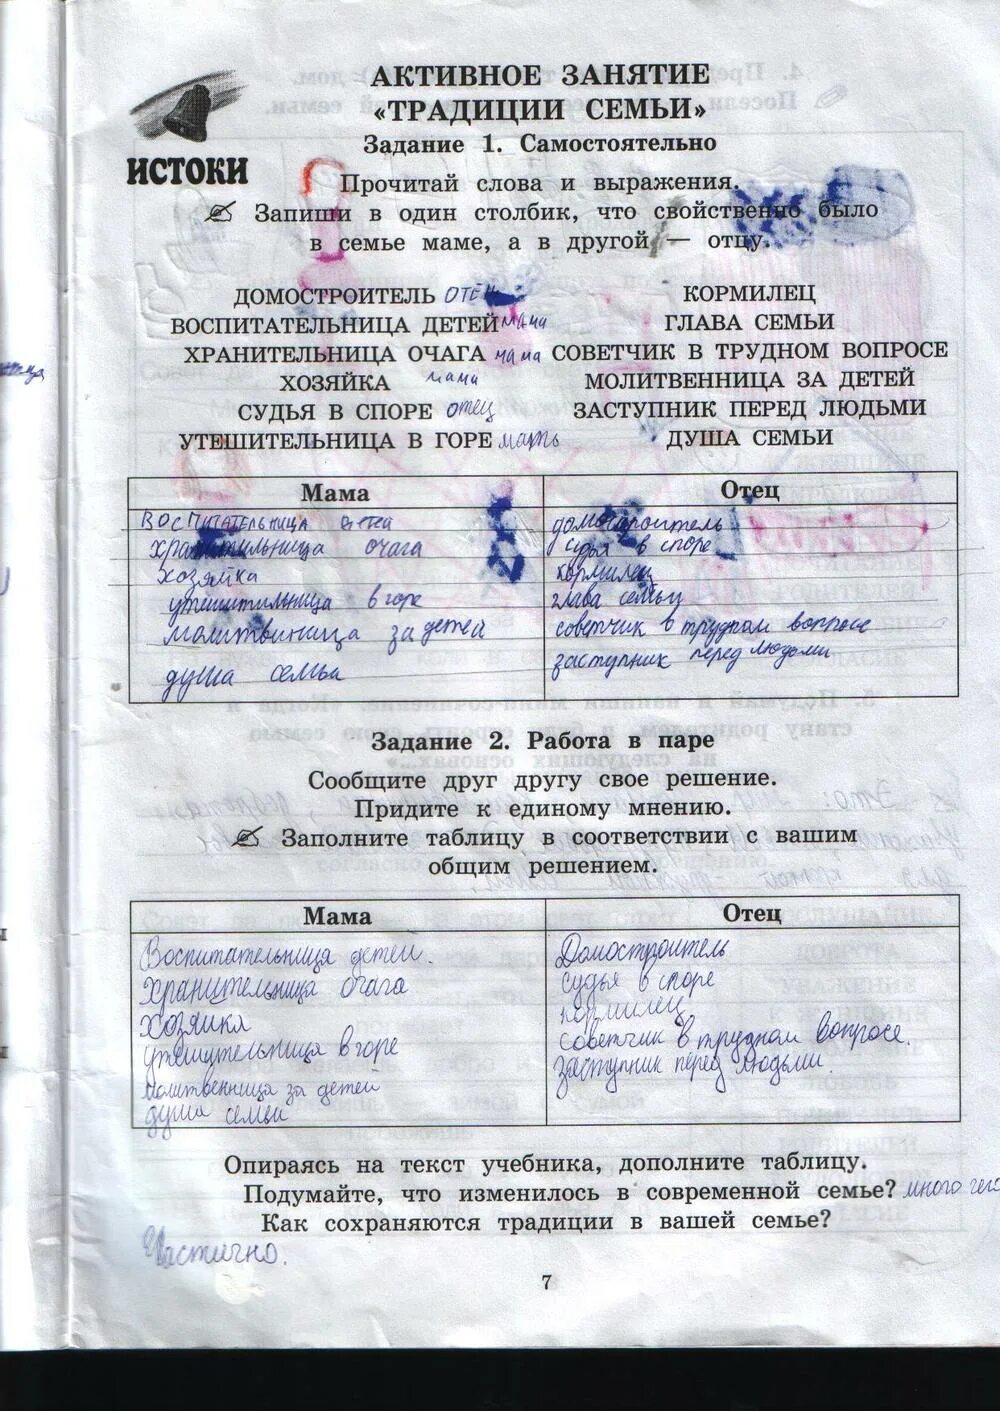 АКТИВНОЕ ЗАНЯТИЕ
«ТРАДИЦИИ СЕМЬИ»
Задание 1. Самостоятельно
ИСТОКИ
Прочитай слова и выражения.
Запиши в один столбик, что свойственно было
в семье маме, а в другой — отцу.
ДОМОСТРОИТЕЛЬ ОТЕЦ КОРМИЛЕЦ
ВОСПИТАТЕЛЬНИЦА ДЕТЕЙ мама ГЛАВА СЕМЬИ
ХРАНИТЕЛЬНИЦА ОЧАГА мама СОВЕТЧИК В ТРУДНОМ ВОПРОСЕ
ХОЗЯЙКА мама МОЛИТВЕННИЦА ЗА ДЕТЕЙ
СУДЬЯ В СПОРЕ отец ЗАСТУПНИК ПЕРЕД ЛЮДЬМИ
УТЕШИТЕЛЬНИЦА В ГОРЕ мать ДУША СЕМЬИ
Мама Отец
ВОСПИТАТЕЛЬНИЦА детей домостроитель
хранитильница очага судья в споре
хозяйка кормилец
утешитильница в горе глава семьи
молитвиница за детей советчик в трудном вопросе
душа семьи заступник перед людьми
Задание 2. Работа в паре
Сообщите друг другу свое решение.
Придите к единому мнению.
Заполните таблицу в соответствии с вашим
общим решением.
Мама Отец
Воспитательница детей. Домостроитель
хранительница очага судья в споре
хозяйка кормилец
утешительница в горе советчик в трудном вопросе.
молитвенница за детей заступник перед людьми.
душа семьи
Опираясь на текст учебника, дополните таблицу.
Подумайте, что изменилось в современной семье? много чего
Как сохраняются традиции в вашей семье?
Частично.
7